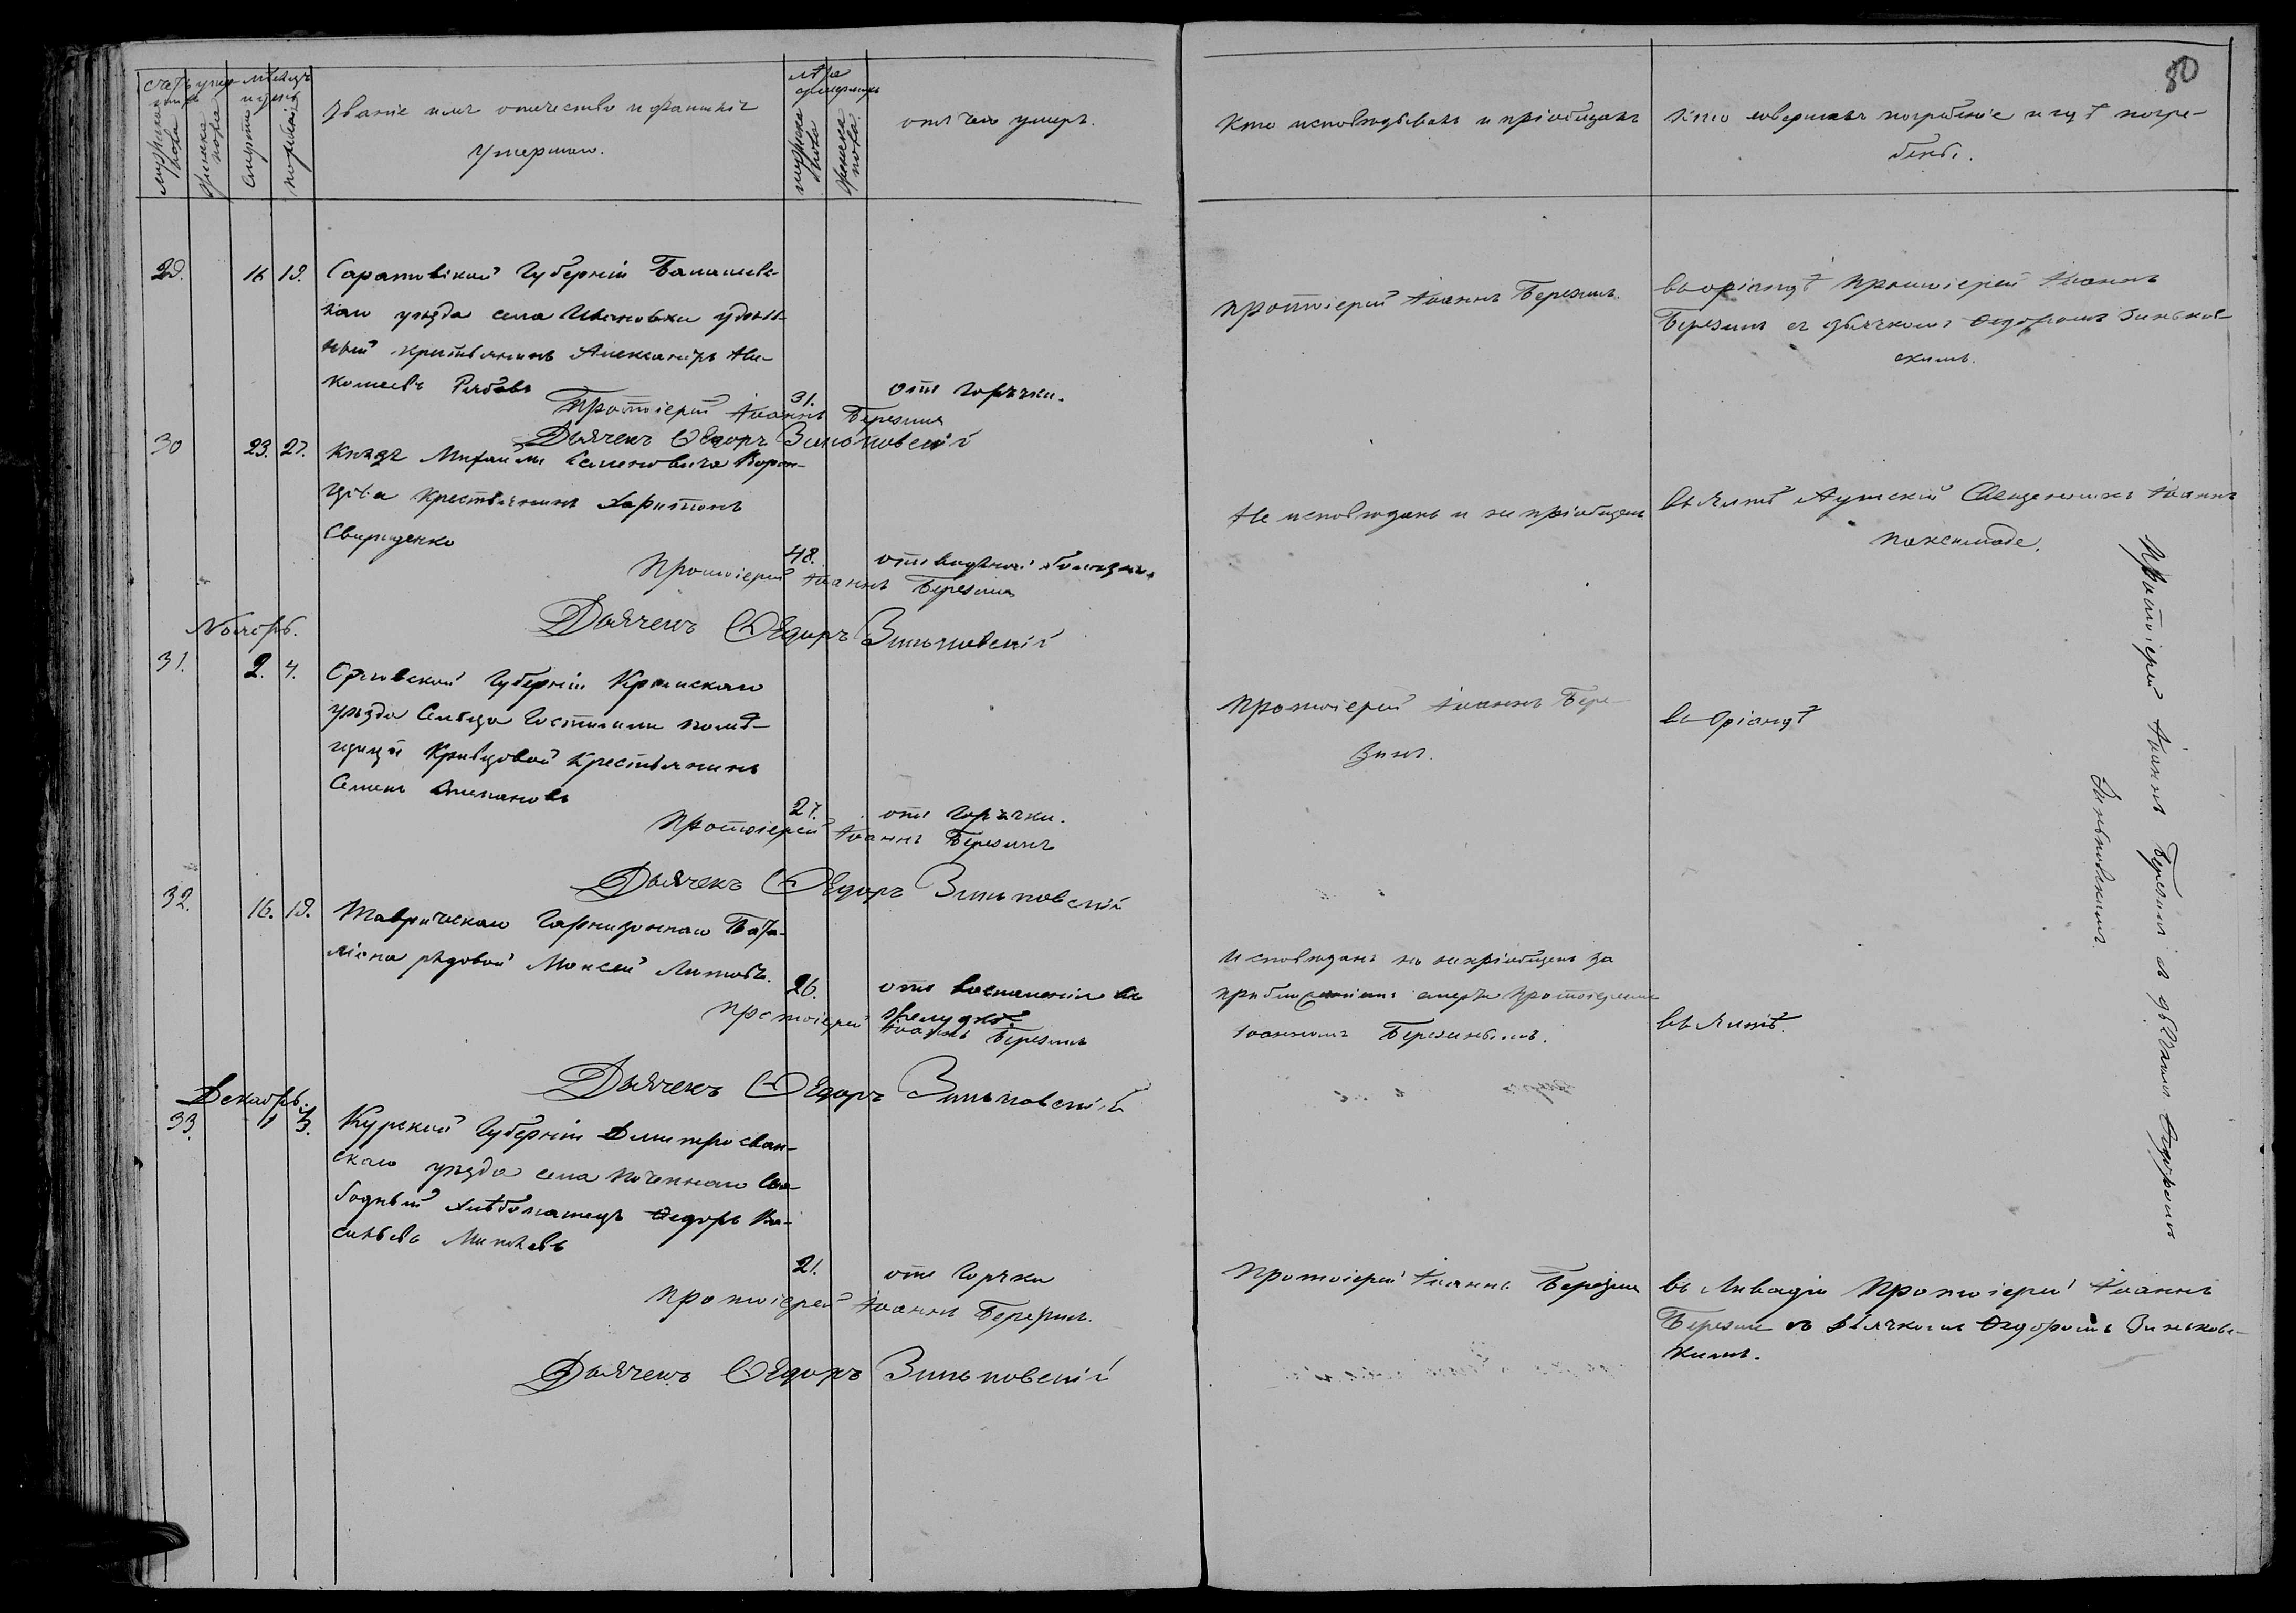 80
Счетъ умер- месяцъ
шихъ и день
мужеска пола
женска пола
смерти
погребенія
Званіе имя отечество и фамилія
умершаго.
лѣта
умершихъ
мужеска пола
женска пола
отъ чего умеръ.
Кто исповѣдывалъ и пріобщалъ
Кто совершалъ погребеніе и гдѣ погре-
бенъ.
29. 16 19. Саратовской Губерніи Балашовс-
каго уѣзда села Ивановки удѣль-
ный крестьянинъ Александръ Ни-
колаевъ Рябовъ
31. отъ горячки.
Протоіерей Іоаннъ Березинъ
Дьячекъ Ѳедоръ Зиньковскій
Протоіерей Іоаннъ Березинъ.
въ оріандѣ Протоіерей Іоаннъ
Березинъ съ дьячкомъ Ѳедоромъ Зиньков-
скимъ.
30 23. 27. Князя Михаила Семеновича Ворон-
цова крестьянинъ Харитонъ
Свириденко
48. отъ водяной болезни.
Протоіерей Іоаннъ Березинъ
Дьячекъ Ѳедоръ Зиньковскій
Не исповѣданъ и не пріобщенъ
въ Ялтѣ Аутскій Священникъ Іоаннъ
Ноябрь.
31. 2. 4. Орловской Губерніи Кромскаго
уѣзда Сельца Гостиммли помѣ-
щицы Кривцовой Крестьянинъ
Семенъ Степановъ
27. отъ горячки.
Протоіерей Іоаннъ Березинъ
Дьячекъ Ѳедоръ Зиньковскій
Протоіерей Іоаннъ Бере-
зинъ.
въ Оріандѣ
32. 16. 19. Таврическаго Гарнизоннаго Бата-
ліона рядовой Моисей Литовъ.
26. отъ воспаленія въ
желудкѣ.
Протоіерей Іоаннъ Березинъ
Дьячекъ Ѳедоръ Зиньковскій
Исповѣданъ но не пріобщенъ за
приближеніемъ смерти Протоіереемъ
Іоанномъ Березинымъ.
въ Ялтѣ.
Декабрь.
33. 1 3. Курской Губерніи Дмитросван-
скаго уѣзда села Поченнаго Сво-
бодный хлѣбопашецъ Ѳедоръ Ва-
сильевъ Михѣевъ
21. отъ горячки
Протоіерей Іоаннъ Березинъ.
Дьячекъ Ѳедоръ Зиньковскій
Протоіерей Іоаннъ Березинъ
въ Ливадіи Протоіерей Іоаннъ
Березинъ съ дьячкомъ Ѳедоромъ Зиньковс-
кимъ.
Протоіерей Іоаннъ Березинъ съ дьячкомъ Ѳедоромъ
Зиньковскимъ.